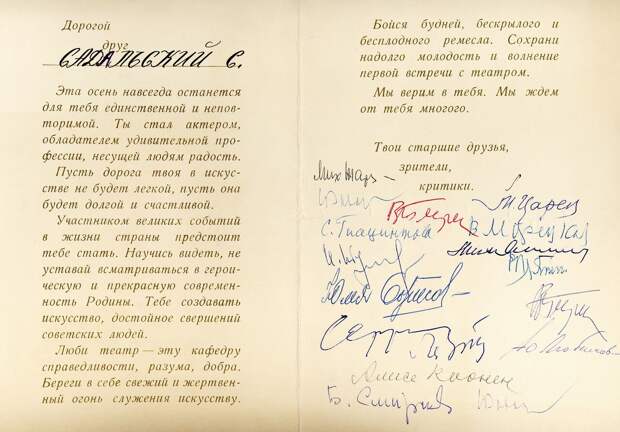 Дорогой
друг
САДАЛЬСКИЙ С.
Эта осень навсегда останется
для тебя единственной и непов-
торимой. Ты стал актером,
обладателем удивительной про-
фессии, несущей людям радость.
Пусть дорога твоя в искус-
стве не будет легкой, пусть она
будет долгой и счастливой.
Участником великих событий
в жизни страны предстоит
тебе стать. Научись видеть, не
уставай всматриваться в герои-
ческую и прекрасную современ-
ность Родины. Тебе создавать
искусство, достойное свершений
советских людей.
Люби театр — эту кафедру
справедливости, разума, добра.
Береги в себе свежий и жертвен-
ный огонь служения искусству.
Бойся будней, бескрылого и
бесплодного ремесла. Сохрани
надолго молодость и волнение
первой встречи с театром.
Мы верим в тебя. Мы ждем
от тебя многого.
Твои старшие друзья,
зрители,
критики.
Мих Жар
М. Царев
С. Гиацинтова
В Марецкая
Юлия Борисов
Алиса Коонен
Б. Смирнов